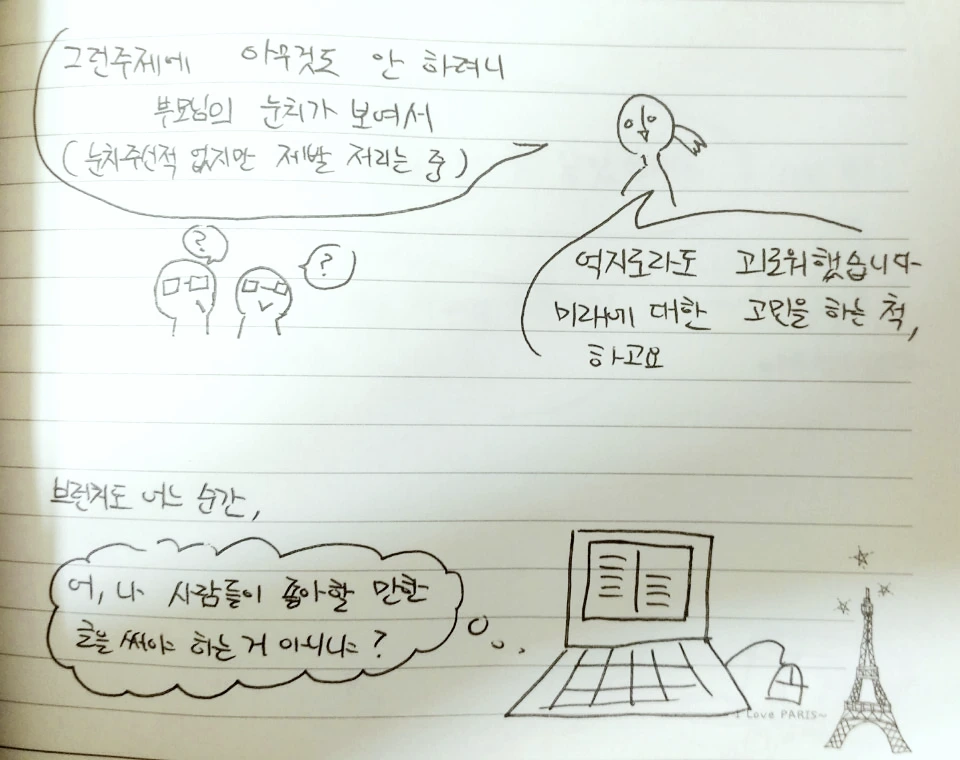 그런주제에 아무것도 안 하려니
부모님의 눈치가 보여서
(눈치주신적 없지만 제발 저리는 중)
?
?
억지로라도 괴로워했습니다
미래에 대한 고민을 하는 척,
하고요
브런치도 어느 순간,
어, 나 사람들이 좋아할 만한
글을 써야 하는 거 아니냐?
I Love PARIS~